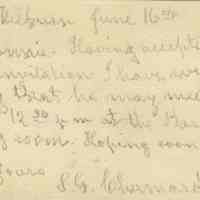 Kilburn June 16th
Having accepted
invitation I have wri
that he may mee
12 30 p m at the Ban
g room. Hoping soon
Yours
S. G.